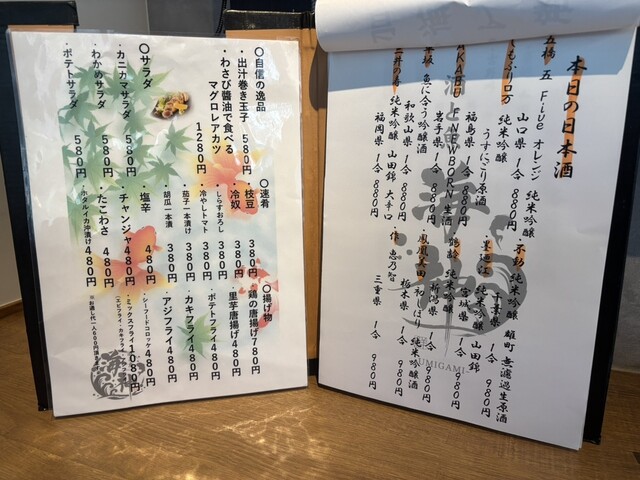 本日の日本酒
五橋 五 Five オレンジ 純米吟醸
山口県 1合 880円
くもぶり ロ万 純米吟醸 うすにごり原酒
福島県 1合 880円
AKABU NEWBORN 純米吟醸 生酒
岩手県 1合 880円
魚に合う吟醸酒
和歌山県 1合 880円
三井の寿 純米吟醸 山田錦 大辛口
福岡県 1合 880円
・不動 純米吟醸 雄町 無濾過生原酒
千葉県 1合 980円
・墨廼江 純米吟醸 山田錦
宮城県 1合 980円
・鶴齢 純米吟醸
新潟県 1合 980円
・鳳凰美田 初しぼり 純米吟醸酒
栃木県 1合 980円
・作 恵乃智
三重県 1合 980円
UMIGAMI
〇自信の逸品
・出汁巻き玉子 580円
・わさび醬油で食べる
マグロレアカツ
1280円
〇サラダ
・カニカマサラダ 580円
・わかめサラダ 580円
・ポテトサラダ 580円
〇速肴
・枝豆 380円
・冷奴 380円
・しらすおろし 380円
・冷やしトマト 380円
・茄子一本漬 380円
・胡瓜一本漬 380円
・塩辛 480円
・チャンジャ 480円
・たこわさ 480円
・ホタルイカ沖漬け 480円
〇揚げ物
・鶏の唐揚げ 780円
・里芋唐揚げ 480円
・ポテトフライ 480円
・カキフライ 480円
・アジフライ 480円
・シーフードコロッケ 480円
・ミックスフライ 1080円
※お通し代一人600円頂